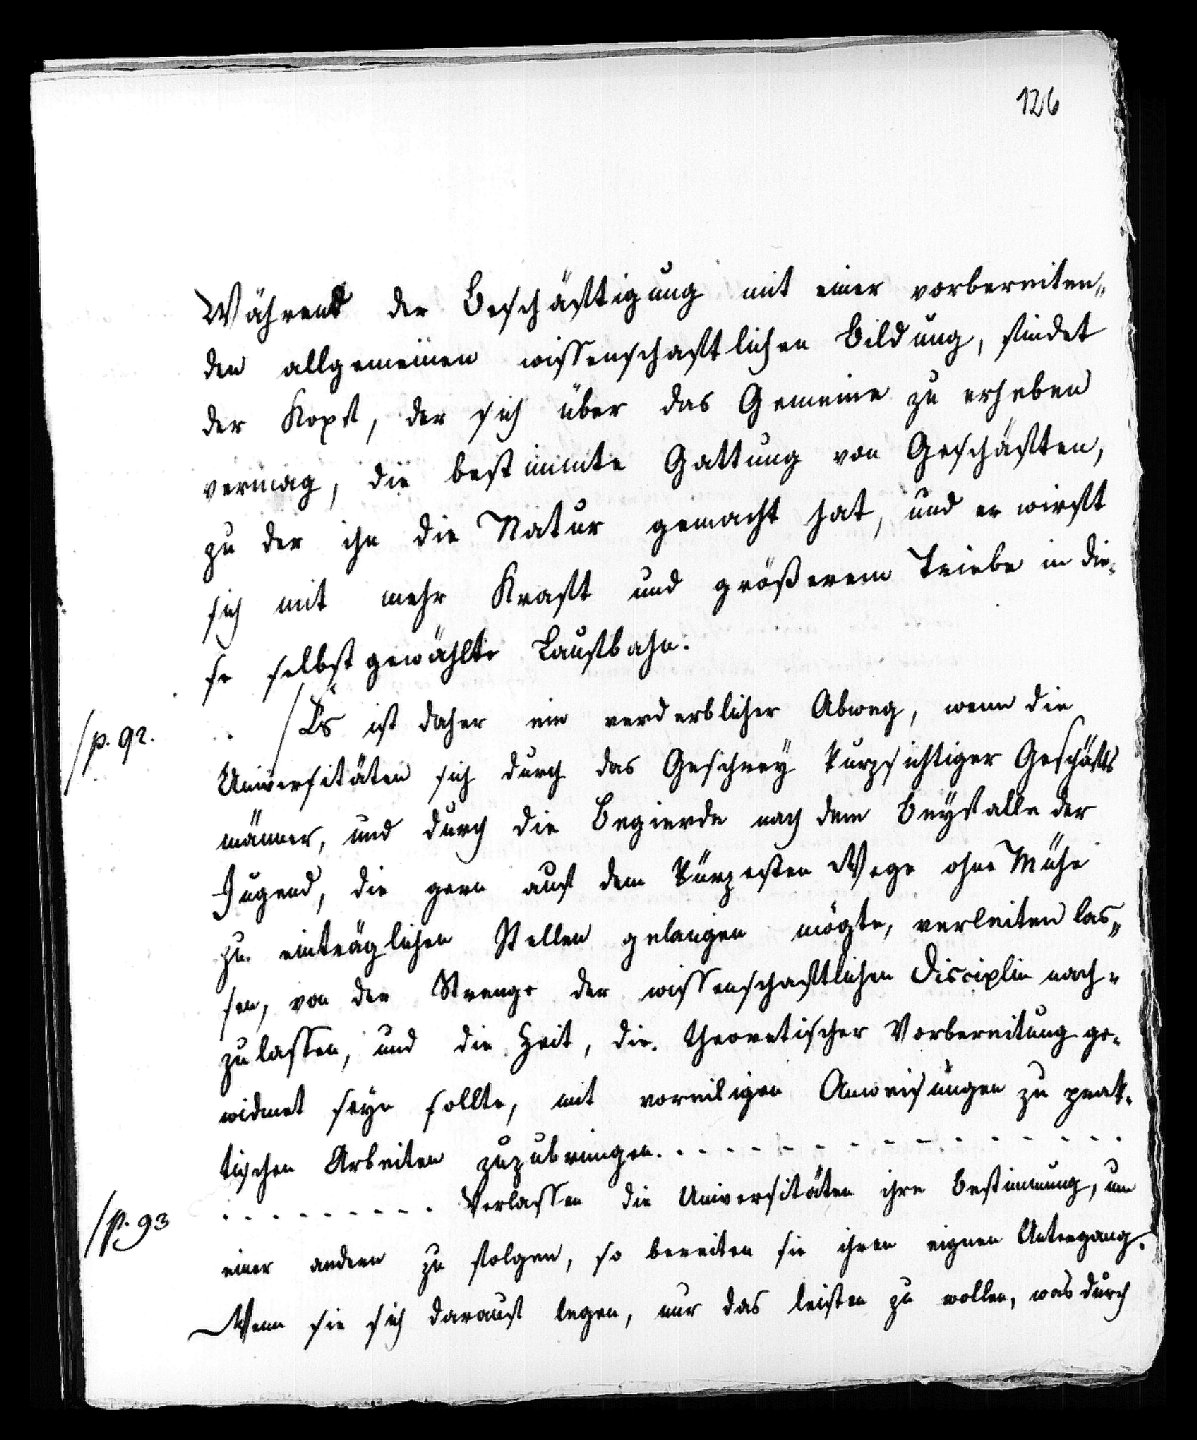 126
Während der Beschäftigung mit einer vorbereiten„
den allgemeinen wissenschaftlichen Bildung, findet
der Kopf, der sich über das Gemeine zu erheben
vermag, die bestimmte Gattung von Geschäften,
zu der ihn die Natur gemacht hat, und er wirft
sich mit mehr Kraft und größerem Triebe in die-
se selbstgewählte Laufbahn.
/p. 92. /Es ist daher ein verderblicher Abweg, wenn die
Universitäten sich durch das Geschrey kurzsichtiger Geschäfts
männer, und durch die Begierde nach dem Beyfalle der
Jugend, die gern auf dem kürzesten Wege ohne Mühe
zu einträglichen Stellen gelangen mögte, verleiten las„
sen, von der Strenge der wissenschaftlichen Disciplin nach-
zulassen, und die Zeit, die theoretischer Vorbereitung ge-
widmet seyn sollte, mit voreiligen Anweisungen zu prak-
tischen Arbeiten zuzubringen. - - - - - - - - - - - - - -
/p. 93 - - - - - - - - - Verlassen die Universitäten ihre Bestimmung, um
einer andern zu folgen, so bereiten sie ihren eignen Untergang.
Wenn sie sich darauf legen, nur das leisten zu wollen, was durch